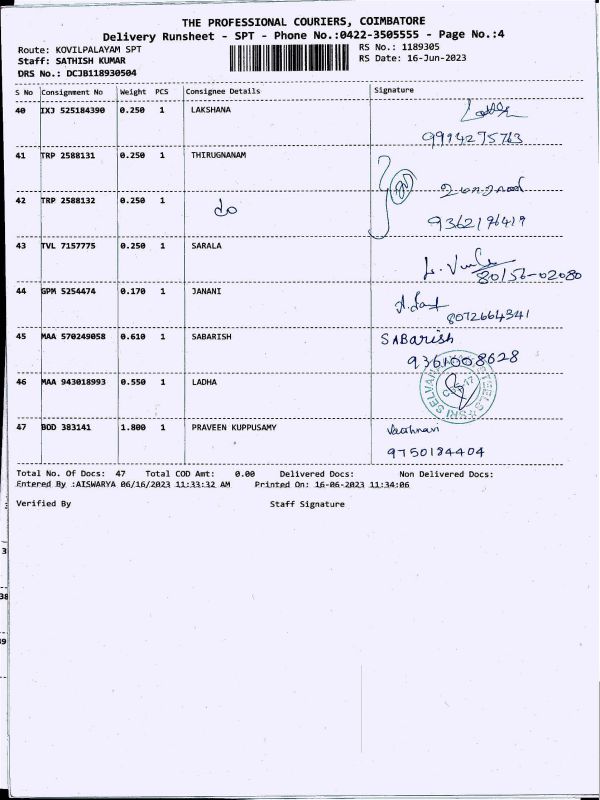 THE PROFESSIONAL COURIERS, COIMBATORE
Delivery Runsheet - SPT - Phone No.:0422-3505555 - Page No.:4
Route: KOVILPALAYAM SPT
RS No.: 1189305
Staff: SATHISH KUMAR
RS Date: 16-Jun-2023
DRS No.: DCJB118930504
S No Consignment No Weight PCS Consignee Details Signature
40 IXJ 525184390 0.250 1 LAKSHANA
9994275763
41 TRP 2588131 0.250 1 THIRUGNANAM
42 TRP 2588132 0.250 1 do
9362196419
43 TVL 7157775 0.250 1 SARALA
80156-02080
44 GPM 5254474 0.170 1 JANANI
8072664341
45 MAA 570249058 0.610 1 SABARISH SABarish
9361008628
46 MAA 943018993 0.550 1 LADHA
47 BOD 383141 1.800 1 PRAVEEN KUPPUSAMY
9750184404
Total No. Of Docs: 47 Total COD Amt: 0.00 Delivered Docs: Non Delivered Docs:
Entered By :AISWARYA 06/16/2023 11:33:32 AM Printed On: 16-06-2023 11:34:06
Verified By Staff Signature
3
38
39